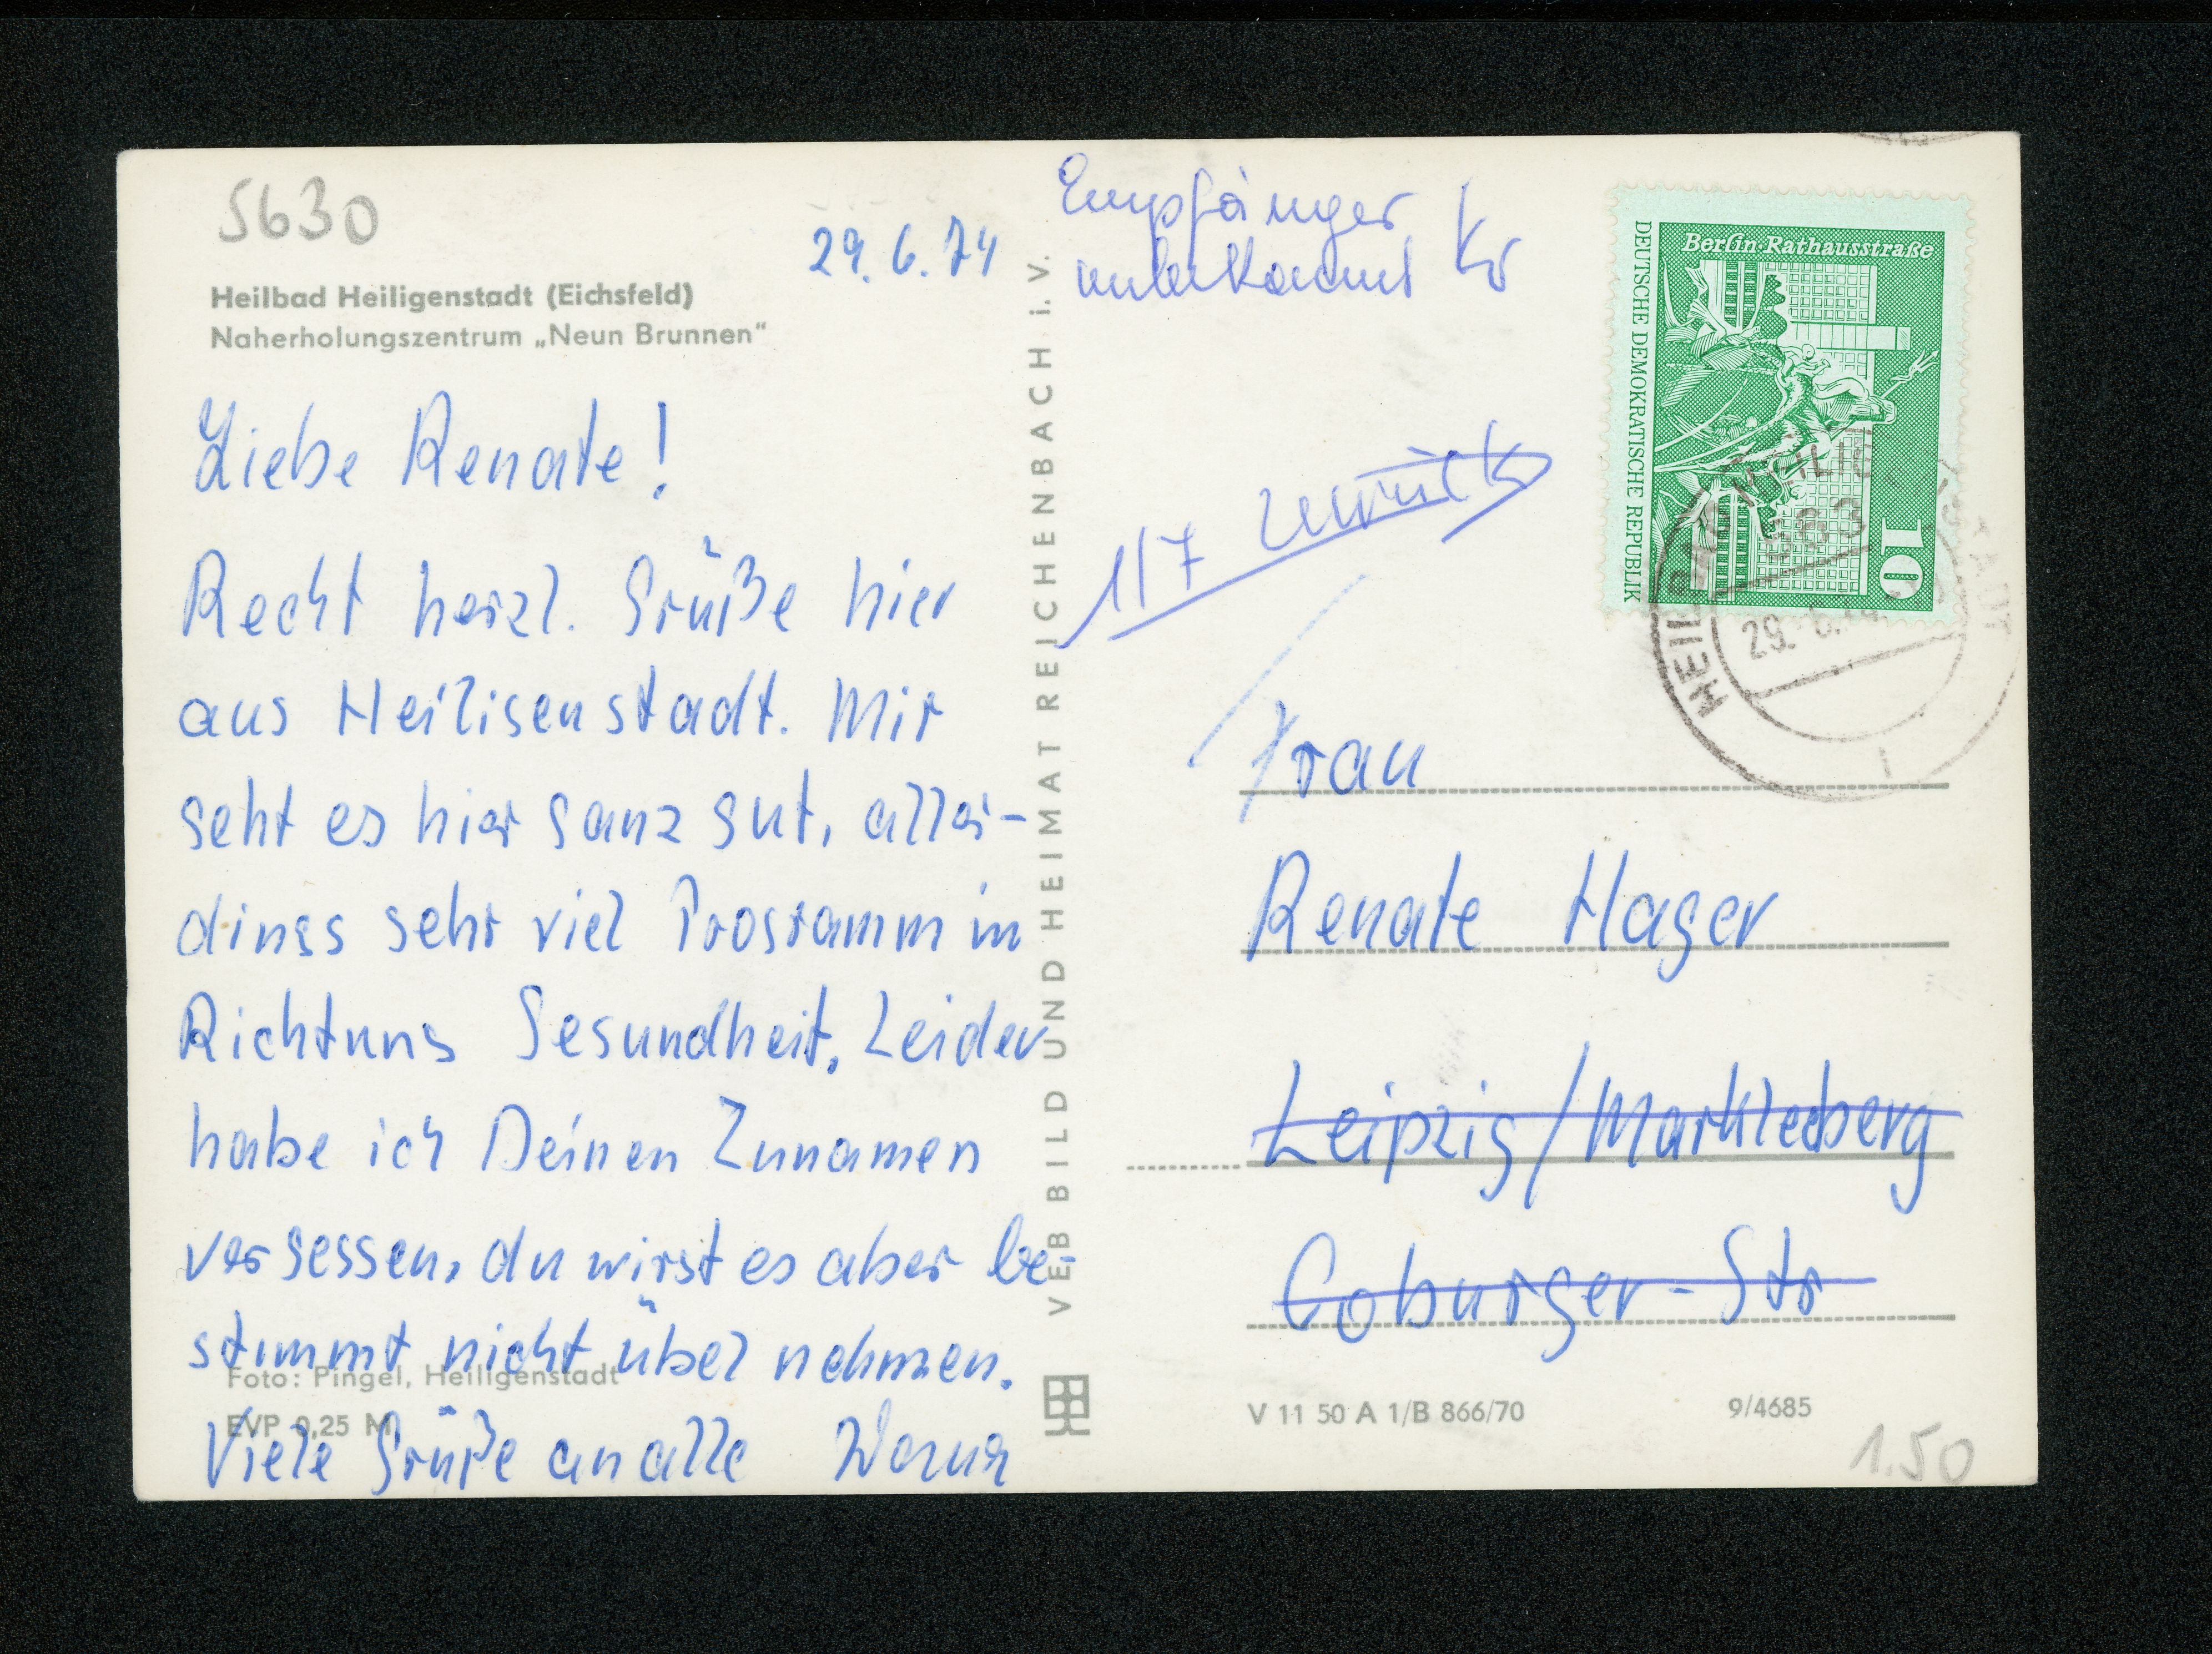 5630
Heilbad Heiligenstadt (Eichsfeld)
Naherholungszentrum „Neun Brunnen“
29. 6. 74
Liebe Renate!
Recht herzl. Grüße hier
aus Heiligenstadt. Mir
geht es hier ganz gut, aller-
dings sehr viel Programm in
Richtung Gesundheit. Leider
habe ich Deinen Zunamen
vergessen, du wirst es aber be-
stimmt nicht übel nehmen.
Foto: Pingel, Heiligenstadt
EVP 0,25 M
Viele Grüße an alle
VEB BILD UND HEIMAT REICHENBACH i. V.
Empfänger
unbekannt Kr
1/7 zurück
Berlin-Rathausstraße
DEUTSCHE DEMOKRATISCHE REPUBLIK
10
29. 6.
Frau
Renate Hager
Leipzig/Markleeberg
Coburger-Str
V 11 50 A 1/B 866/70
9/4685
1.50